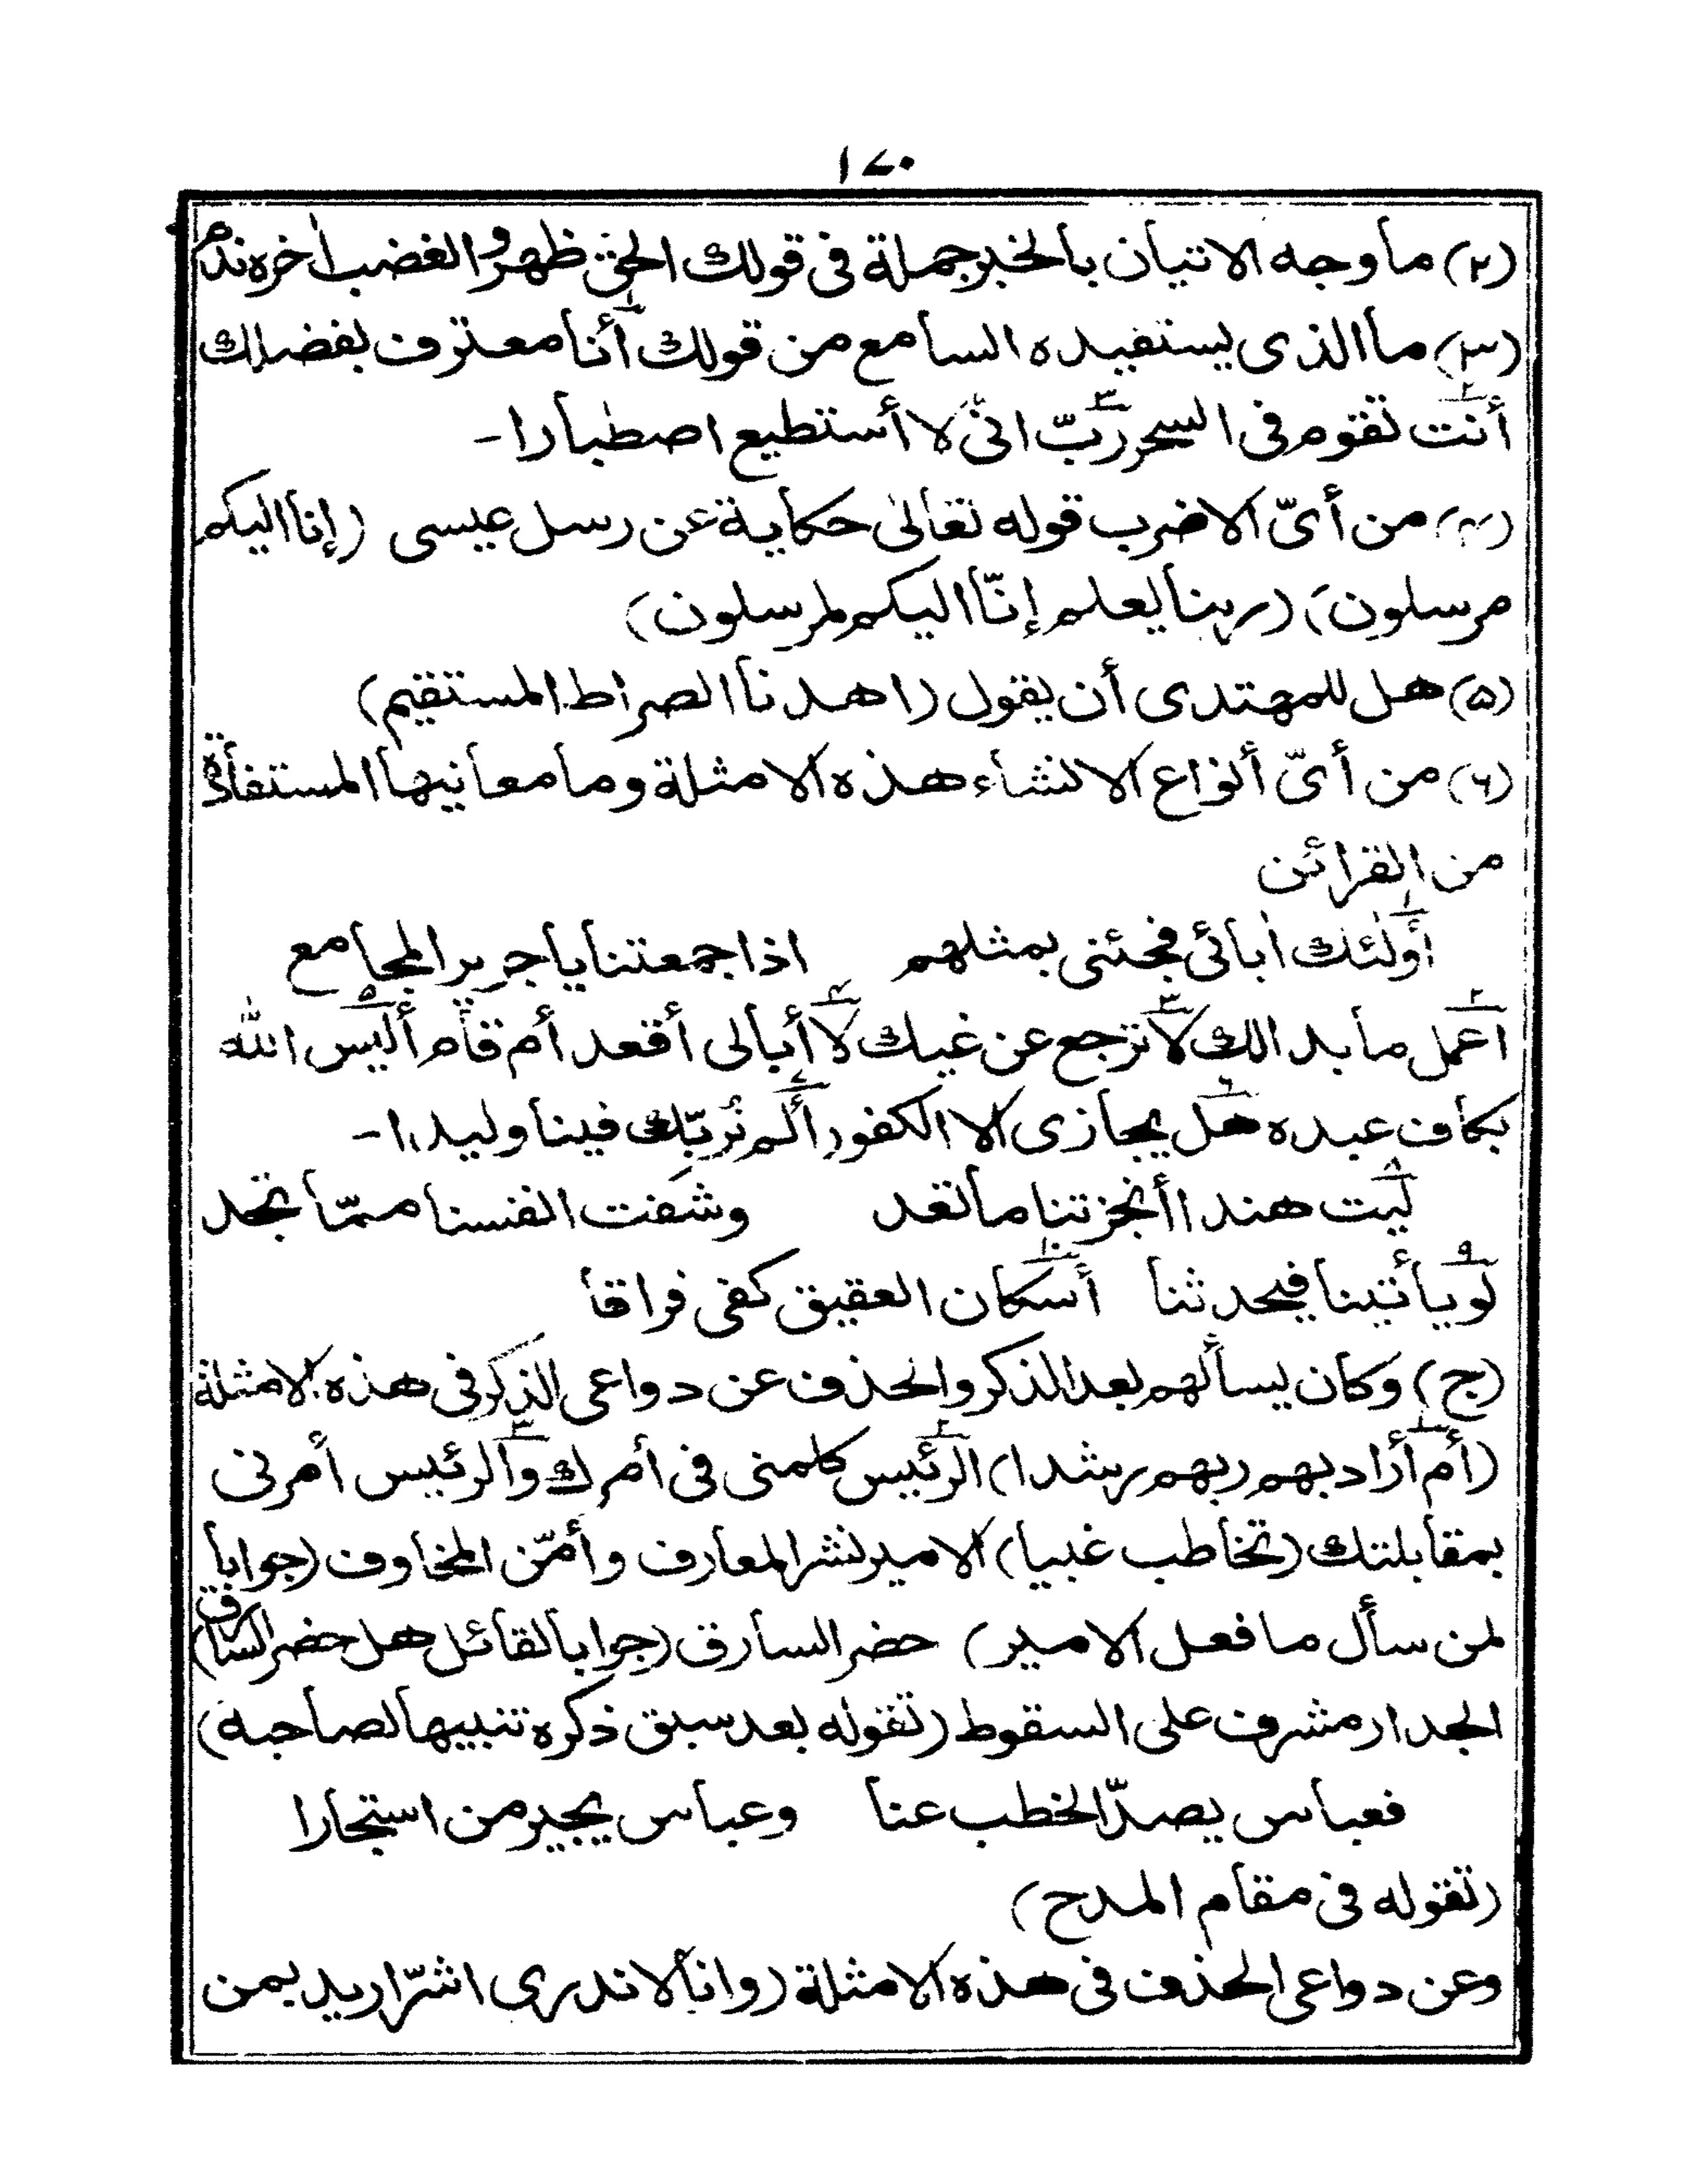 ١٧٠
(٢) ما وجه الاتيان بالخبر جملة فى قولك الحق ظهر والغضب اٰخره ندم
(٣) ما الذى يستفيده السامع من قولك ١ أنا معترف بفضلك
٢ أنت تقوم فى السحر ٣ ربّ انى لا أستطيع اصطبارا -
(٤) من أىّ الاضرب قوله تعالىٰ حكاية عن رسل عيسى (إنا اليكم
مرسلون) (ربنا يعلم إنّا اليكم لمرسلون)
(۵) هل للمهتدى أن يقول (اهدنا الصراط المستقيم)
(٦) من أىّ أنواع الانشاء هذه الامثلة وما معانيها المستفادة
من القرائن
١ أولٰئك اٰبائى فجئنى بمثلهم اذا جمعتنا يا جرير المجامع
٢ اعمل ما بدا لك ٣ لا ترجع عن غيك ٤ لا أبالى أقعد أم قام ۵ أليس الله
بكاف عبده ٦ هل يجازى الا الكفور ٧ ألم نُربّك فينا وليدا -
٨ ليت هندا أنجزتنا ما تعد وشفت انفسنا ممّا تجد
٩ لو يأتينا فيحدثنا ١٠ أسكان العقيق كفى فراقا
(ج) وكان يسألهم بعد الذكر والحذف عن دواعى الذكر فى هذه الامثلة
١ (أم أراد بهم ربهم رشدا) ٢ الرئيس كلمنى فى أمرك ٣ والرئيس أمرنى
بمقابلتك (تخاطب غبيا) الامير نشر المعارف وأمّن المخاوف (جوابا
لمن سأل ما فعل الامير) حضر السارق (جوابا لقائل هل حضر السارق)
الجدار مشرف على السقوط (تقوله بعد سبق ذكره تنبيها لصاحبه)
فعباس يصدّ الخطب عنا وعباس يجير من استجارا
(تقوله فى مقام المدح)
وعن دواعى الحذف فى هذه الامثلة (وانا لا ندرى اشرّ اريد بمن